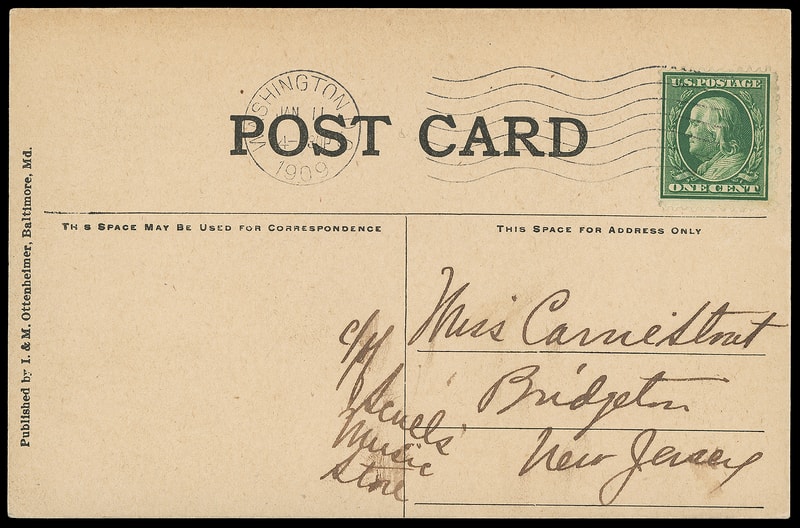 WASHINGTON, D.C.
JAN 11
1909
POST CARD
U.S. POSTAGE
ONE CENT
THIS SPACE MAY BE USED FOR CORRESPONDENCE
THIS SPACE FOR ADDRESS ONLY
Published by I. & M. Ottenheimer, Baltimore, Md.
Miss Carrie Stout
Bridgeton
New Jersey
Music
Store